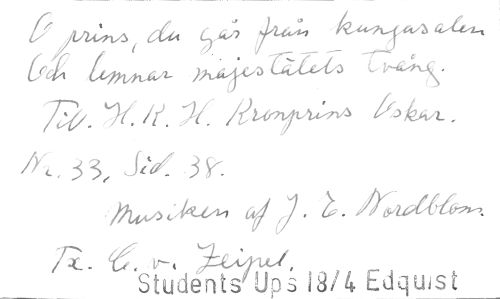 O prins, du går från kungasalen
Och lemnar majestätets tvång.
Till. H. K. H. Kronprins Oskar.
Nr. 33, Sid. 38.
Musiken af J. E. Nordblom.
Tx. C. v. Zeipel.
Students Ups 18/4 Edquist